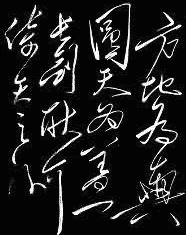 方地為輿
圓天為蓋
長劍耿介
倚天之外